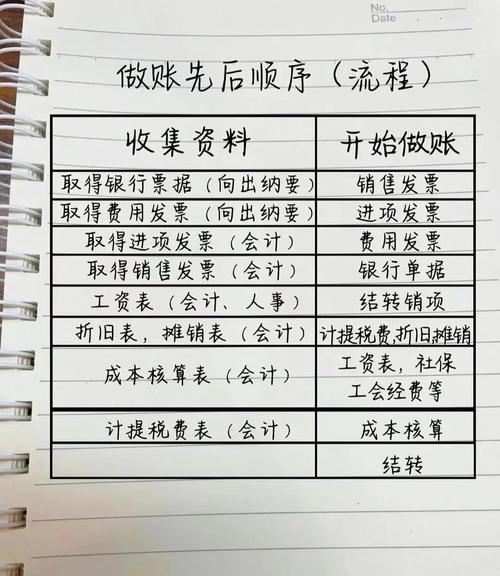 No.
Date
做账先后顺序（流程）
收集资料 开始做账
取得银行票据（向出纳要） 销售发票
取得费用发票（向出纳要） 进项发票
取得进项发票（会计） 费用发票
取得销售发票（会计） 银行单据
工资表（会计、人事） 结转销项
折旧表，摊销表（会计） 计提税费,折旧,摊销
成本核算表（会计） 工资表，社保
工会经费等
计提税费表（会计） 成本核算
结转